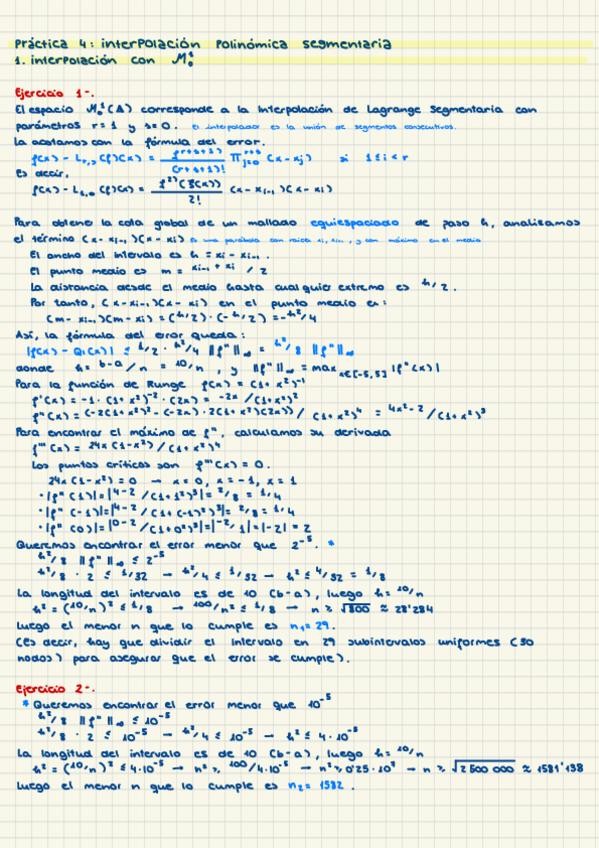 Práctica 4: interpolación polinómica segmentaria
1. interpolación con M₀¹
Ejercicio 1-.
El espacio M₀¹(Δ) corresponde a la interpolación de Lagrange segmentaria con
parámetros r=1 y s=0. El interpolador es la unión de segmentos consecutivos.
La acotamos con la fórmula del error.
f(x) - L_{r,s}(f)(x) = f^{r+s+1)} / (r+s+1)! ∏_{j=0}^{r+s} (x-x_j) si 1≤i<r
Es decir,
f(x) - L_{1,0}(f)(x) = f^{2)}(ξ(x)) / 2! (x-x_{i-1})(x-x_i)
Para obtener la cota global de un mallado equiespaciado de paso h, analizamos
el término (x-x_{i-1})(x-x_i) es una parábola con raíces x_i, x_{i-1}, y con máximo en el medio
El ancho del intervalo es h = x_i - x_{i-1}.
El punto medio es m = x_{i-1} + x_i / 2
La distancia desde el medio hasta cualquier extremo es h/2.
Por tanto, (x-x_{i-1})(x-x_i) en el punto medio es:
(m-x_{i-1})(m-x_i) = (h/2)·(-h/2) = -h²/4
Así, la fórmula del error queda:
|f(x) - Q₁(x)| ≤ 1/2 · h²/4 ||f''||∞ = h²/8 ||f''||∞
donde h = b-a/n = 10/n, y ||f''||∞ = max_{x∈[-5,5]} |f''(x)|
Para la función de Runge f(x) = (1+x²)⁻¹
f'(x) = -1·(1+x²)⁻²·(2x) = -2x/(1+x²)²
f''(x) = (-2(1+x²)² - (-2x)·2(1+x²)(2x)) / (1+x²)⁴ = 6x²-2/(1+x²)³
Para encontrar el máximo de f'', calculamos su derivada
f'''(x) = 24x(1-x²)/(1+x²)⁴
Los puntos críticos son f'''(x) = 0.
24x(1-x²) = 0 → x=0, x=-1, x=1
·|f''(1)| = |4-2/(1+1²)³| = 2/8 = 1/4
·|f''(-1)| = |4-2/(1+(-1)²)³| = 2/8 = 1/4
·|f''(0)| = |0-2/(1+0²)³| = |-2/1| = |-2| = 2
Queremos encontrar el error menor que 2⁻⁵. *
h²/8 ||f''||∞ ≤ 2⁻⁵
h²/8 · 2 ≤ 1/32 → h²/4 ≤ 1/32 → h² ≤ 4/32 = 1/8
La longitud del intervalo es de 10 (b-a), luego h = 10/n
h² = (10/n)² ≤ 1/8 → 100/n² ≤ 1/8 → n ≥ √800 ≈ 28'284
Luego el menor n que lo cumple es n₁ = 29.
(Es decir, hay que dividir el intervalo en 29 subintervalos uniformes (30
nodos) para asegurar que el error se cumple).
Ejercicio 2-.
* Queremos encontrar el error menor que 10⁻⁵
h²/8 ||f''||∞ ≤ 10⁻⁵
h²/8 · 2 ≤ 10⁻⁵ → h²/4 ≤ 10⁻⁵ → h² ≤ 4·10⁻⁵
La longitud del intervalo es de 10 (b-a), luego h = 10/n
h² = (10/n)² ≤ 4·10⁻⁵ → n² ≥ 100/4·10⁻⁵ → n² ≥ 0'25·10⁷ → n ≥ √2 500 000 ≈ 1581'138
Luego el menor n que lo cumple es n₂ = 1582.